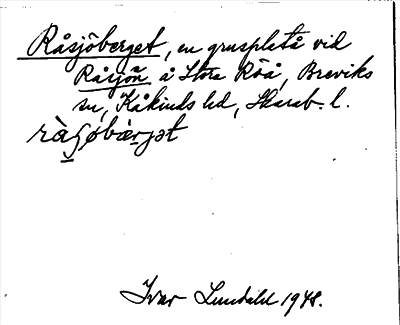 Råsjöberget, en grusplatå vid
Råsjön å Stora Röå, Breviks
sn, Kåkinds hd, Skarab. l.
ràʃöbær̲jət
Ivar Lundahl 1948.